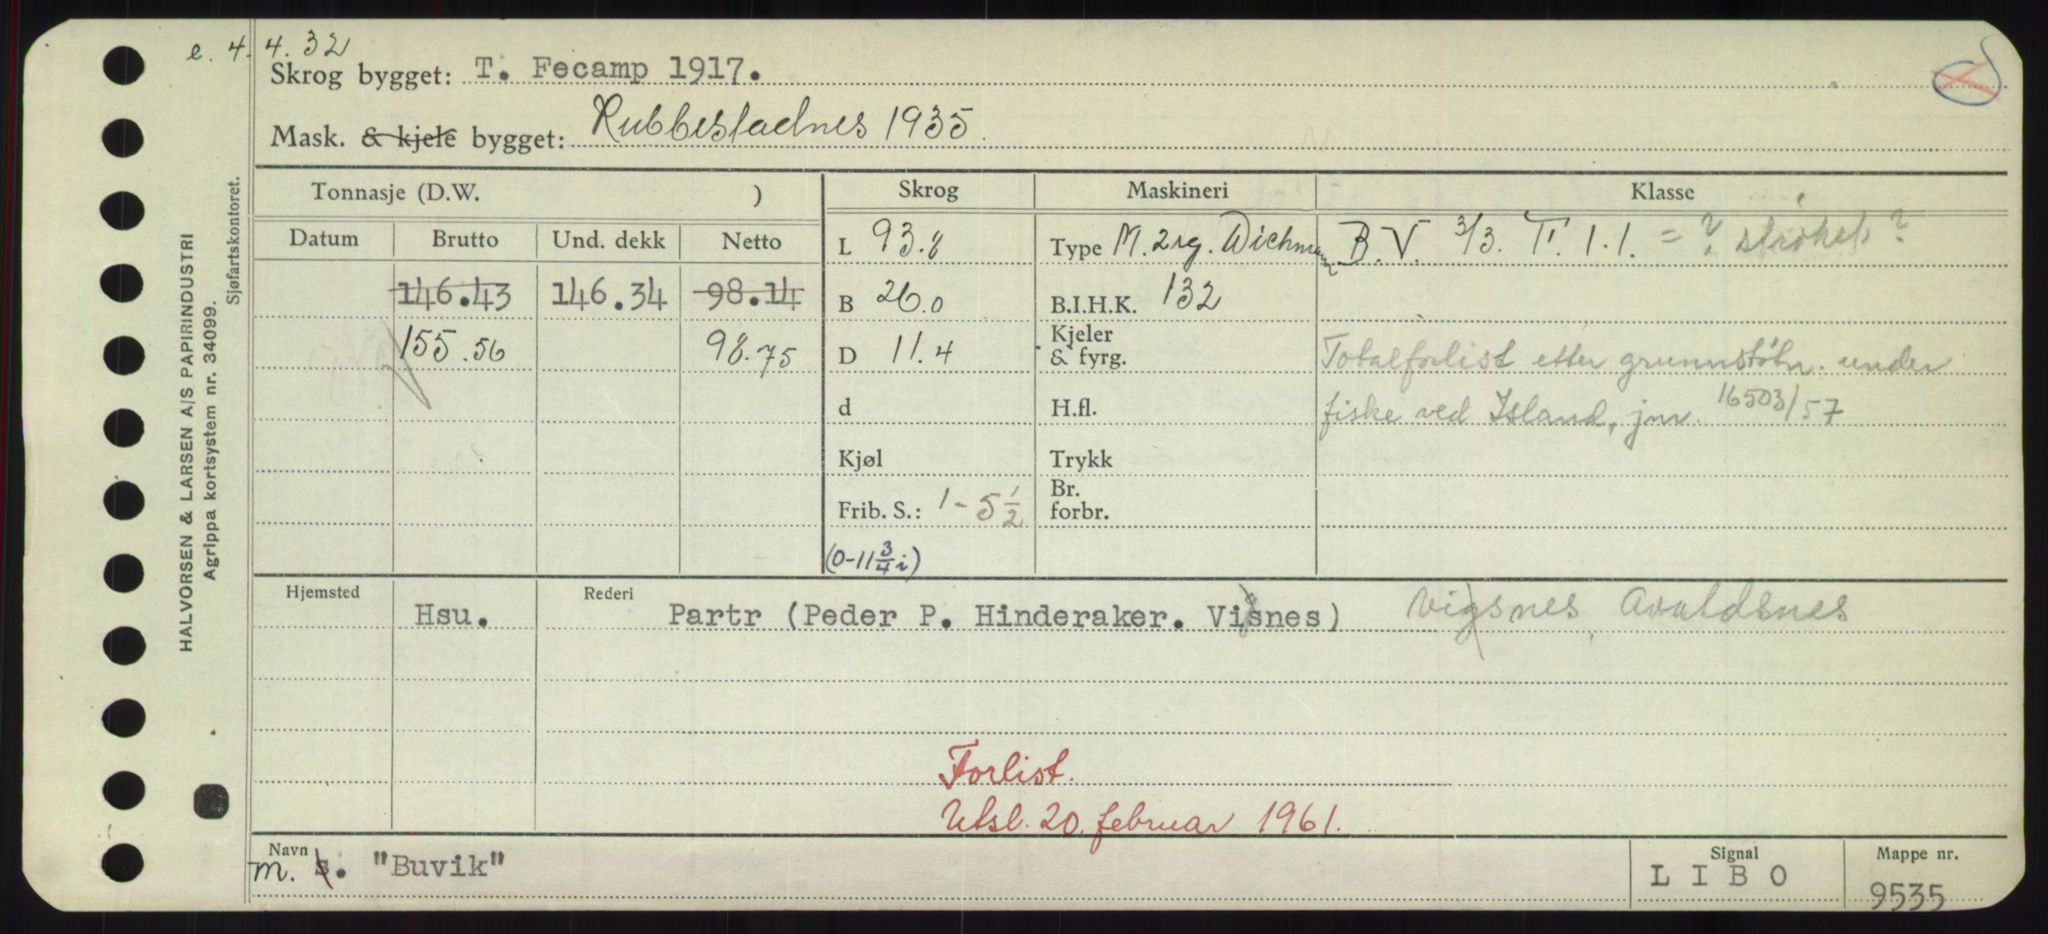 e. 4. 4. 32
Skrog bygget: T. Fecamp 1917.
Mask. & kjele bygget: Rubbestadnes 1935.
HALVORSEN & LARSEN A/S PAPIRINDUSTRI
Agrippa kortsystem nr. 34099.
Sjøfartskontoret.
Tonnasje (D.W. ) Skrog Maskineri Klasse
Datum Brutto Und. dekk Netto
L 93.8 Type M. 2 sg. Wichmann B.V. 3/3. T. 1.1. = ? strøket ?
146.43 146.34 98.14 B 26.0 B.I.H.K. 132
155.56 98.75 D 11.4 Kjeler & fyrg. Totalforlist etter grunnstøtn. under
d H.fl. fiske ved Island, jnr. 16503/57
Kjøl Trykk
Frib. S.: 1 - 5 1/2 Br. forbr.
(0-11 3/4 i)
Hjemsted Hsu. Rederi Partr (Peder P. Hinderaker. Visnes) Vigsnes, Avaldsnes
Forlist.
Utsl. 20. februar 1961.
Navn m. s. "Buvik" Signal L I B O Mappe nr. 9535